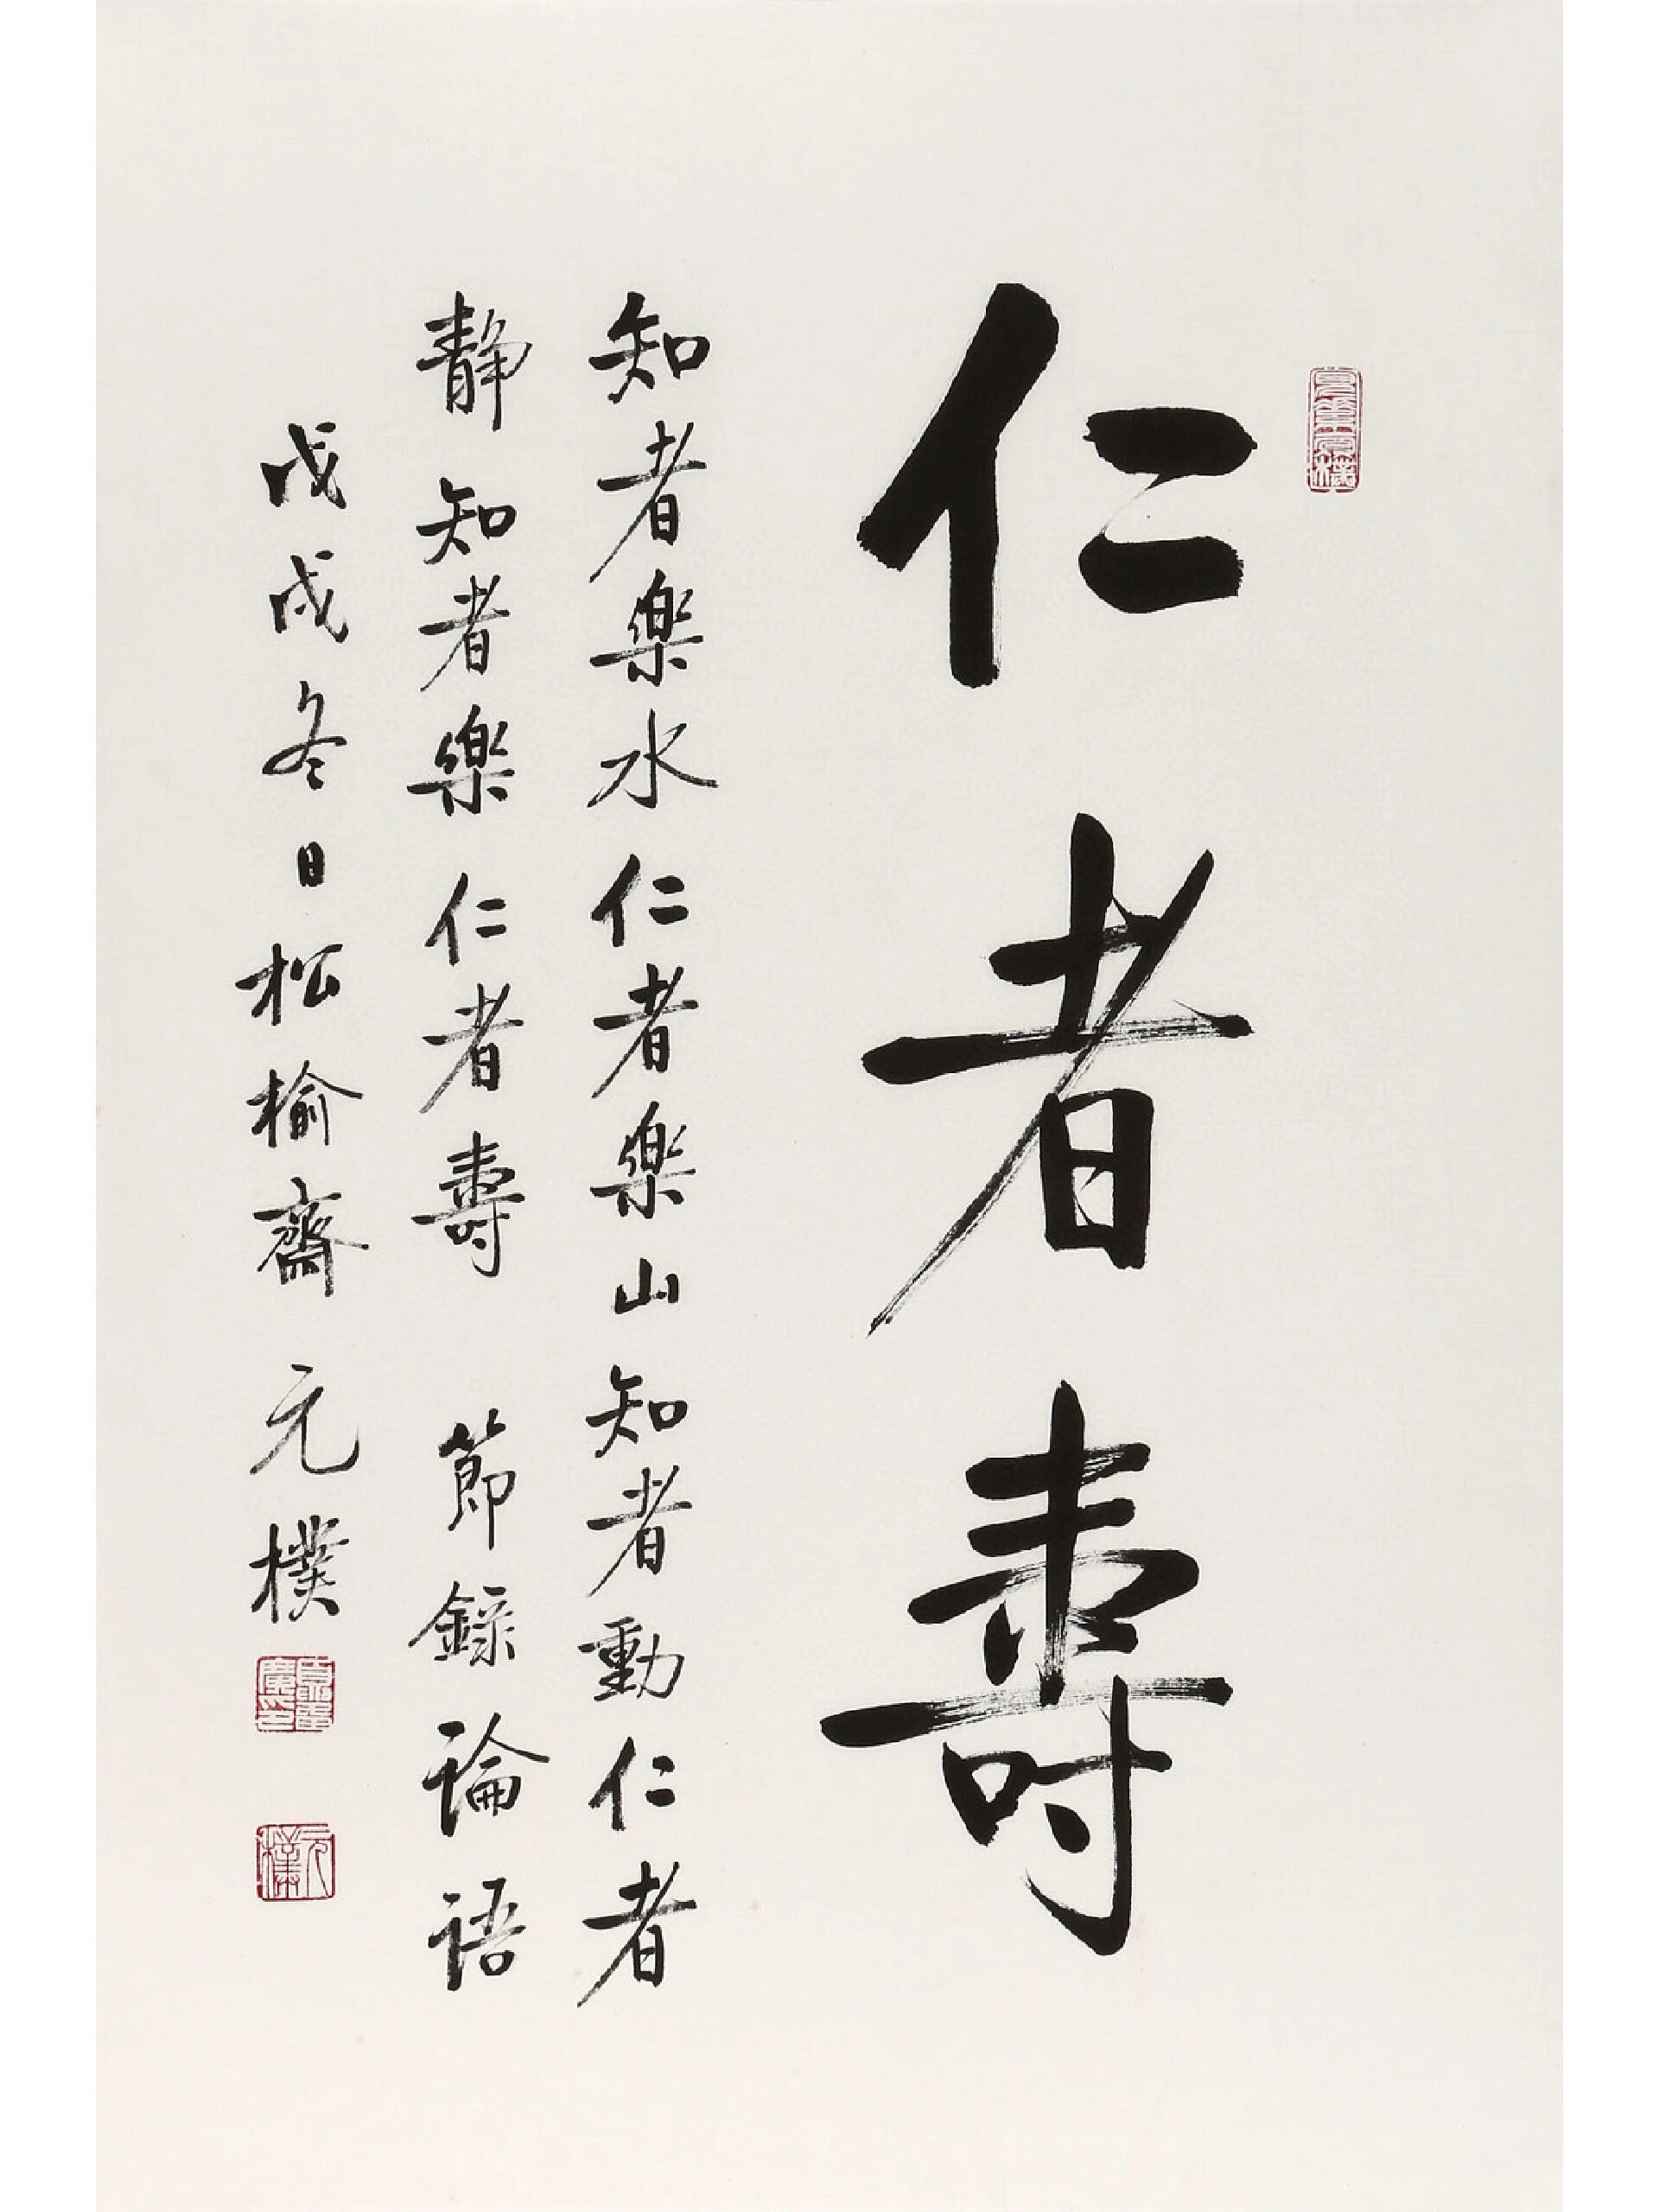 仁者壽
知者樂水仁者樂山知者動仁者
靜知者樂仁者壽 節錄論語
戊戌冬日松榆齋 元樸
元樸